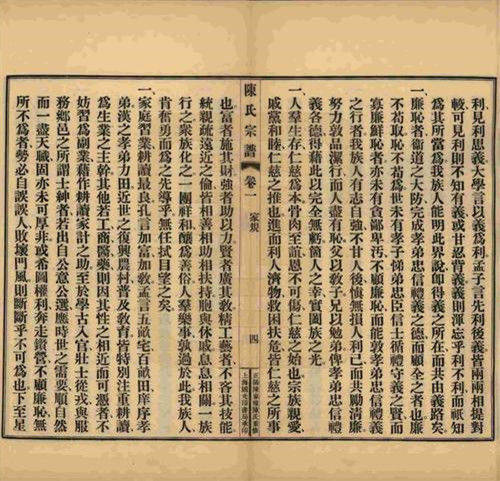 利見利思義大學言以義爲利孟子言先利後義皆兩兩相提對
較可見利則不知有義或甘忍背義義則渾忘乎利不利而祇知
爲其所當爲我族人能明此界說即得義之所在而共由義路矣
一、廉恥者衞道之大防完成孝弟忠信禮義之德而顧全之者也廉
不苟取恥不苟爲世未有孝子悌弟忠臣信士循禮守義之賢而
寡廉鮮恥者亦未有貪鄙卑污不顧廉恥而能敦孝弟忠信禮義
之行者我族人有志自強不甘人後愼無損人利己而共勵淸廉
努力敦品潔行而人盡有恥父以敎子兄以勉弟俾孝弟忠信禮
義各德得藉此以完全無虧箇人之幸國族之光
一、人羣生存仁慈爲本骨肉至誼恩不可傷仁慈之始也宗族親愛
戚黨和睦仁慈之推也進而利人濟物救困扶危皆仁慈之所事
陳氏宗譜
卷一
家規
四
也富者施其財強者助以力賢者廣其敎精工藝者不吝其技能
統親疏遠近之倫皆相善相助相扶持胞與休戚息息相關一族
行之衆族化之一團祥和釀爲善俗人羣樂事孰過於此我族人
肯奮勇而爲之先導乎無任拭目望之矣
一、家庭習業耕讀最良孔言加富加敎孟言五畝宅百畝田庠序孝
弟漢之孝弟力田近世之復興農村普及敎育皆特別注重耕讀
爲生業之主幹其他若工商醫藥則擇其性之相近而可憑者不
妨習爲副業藉作耕讀家計之助至於學古入官壯士從戎與服
務鄕邑之所謂士紳者若出自公意公選應時世之需要順自然
而一盡天職固亦未可厚非或希圖權利奔走鑽營不顧廉恥無
所不爲者勢必自誤誤人敗壞門風則斷斷乎不可爲也下至星